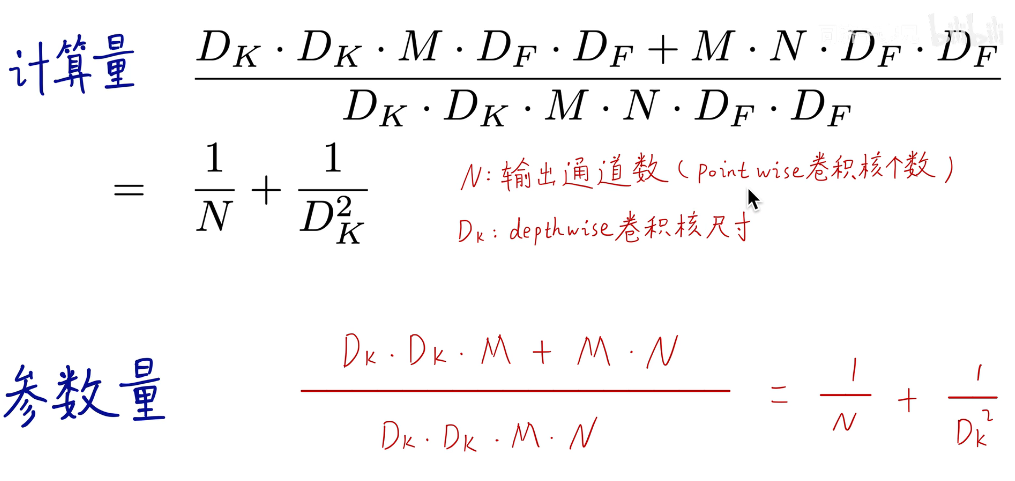 计算量 (D_K · D_K · M · D_F · D_F + M · N · D_F · D_F) / (D_K · D_K · M · N · D_F · D_F)
= 1/N + 1/D_K^2
N: 输出通道数 (pointwise卷积核个数)
D_K: depthwise卷积核尺寸
参数量 (D_K · D_K · M + M · N) / (D_K · D_K · M · N) = 1/N + 1/D_K^2
bilibili